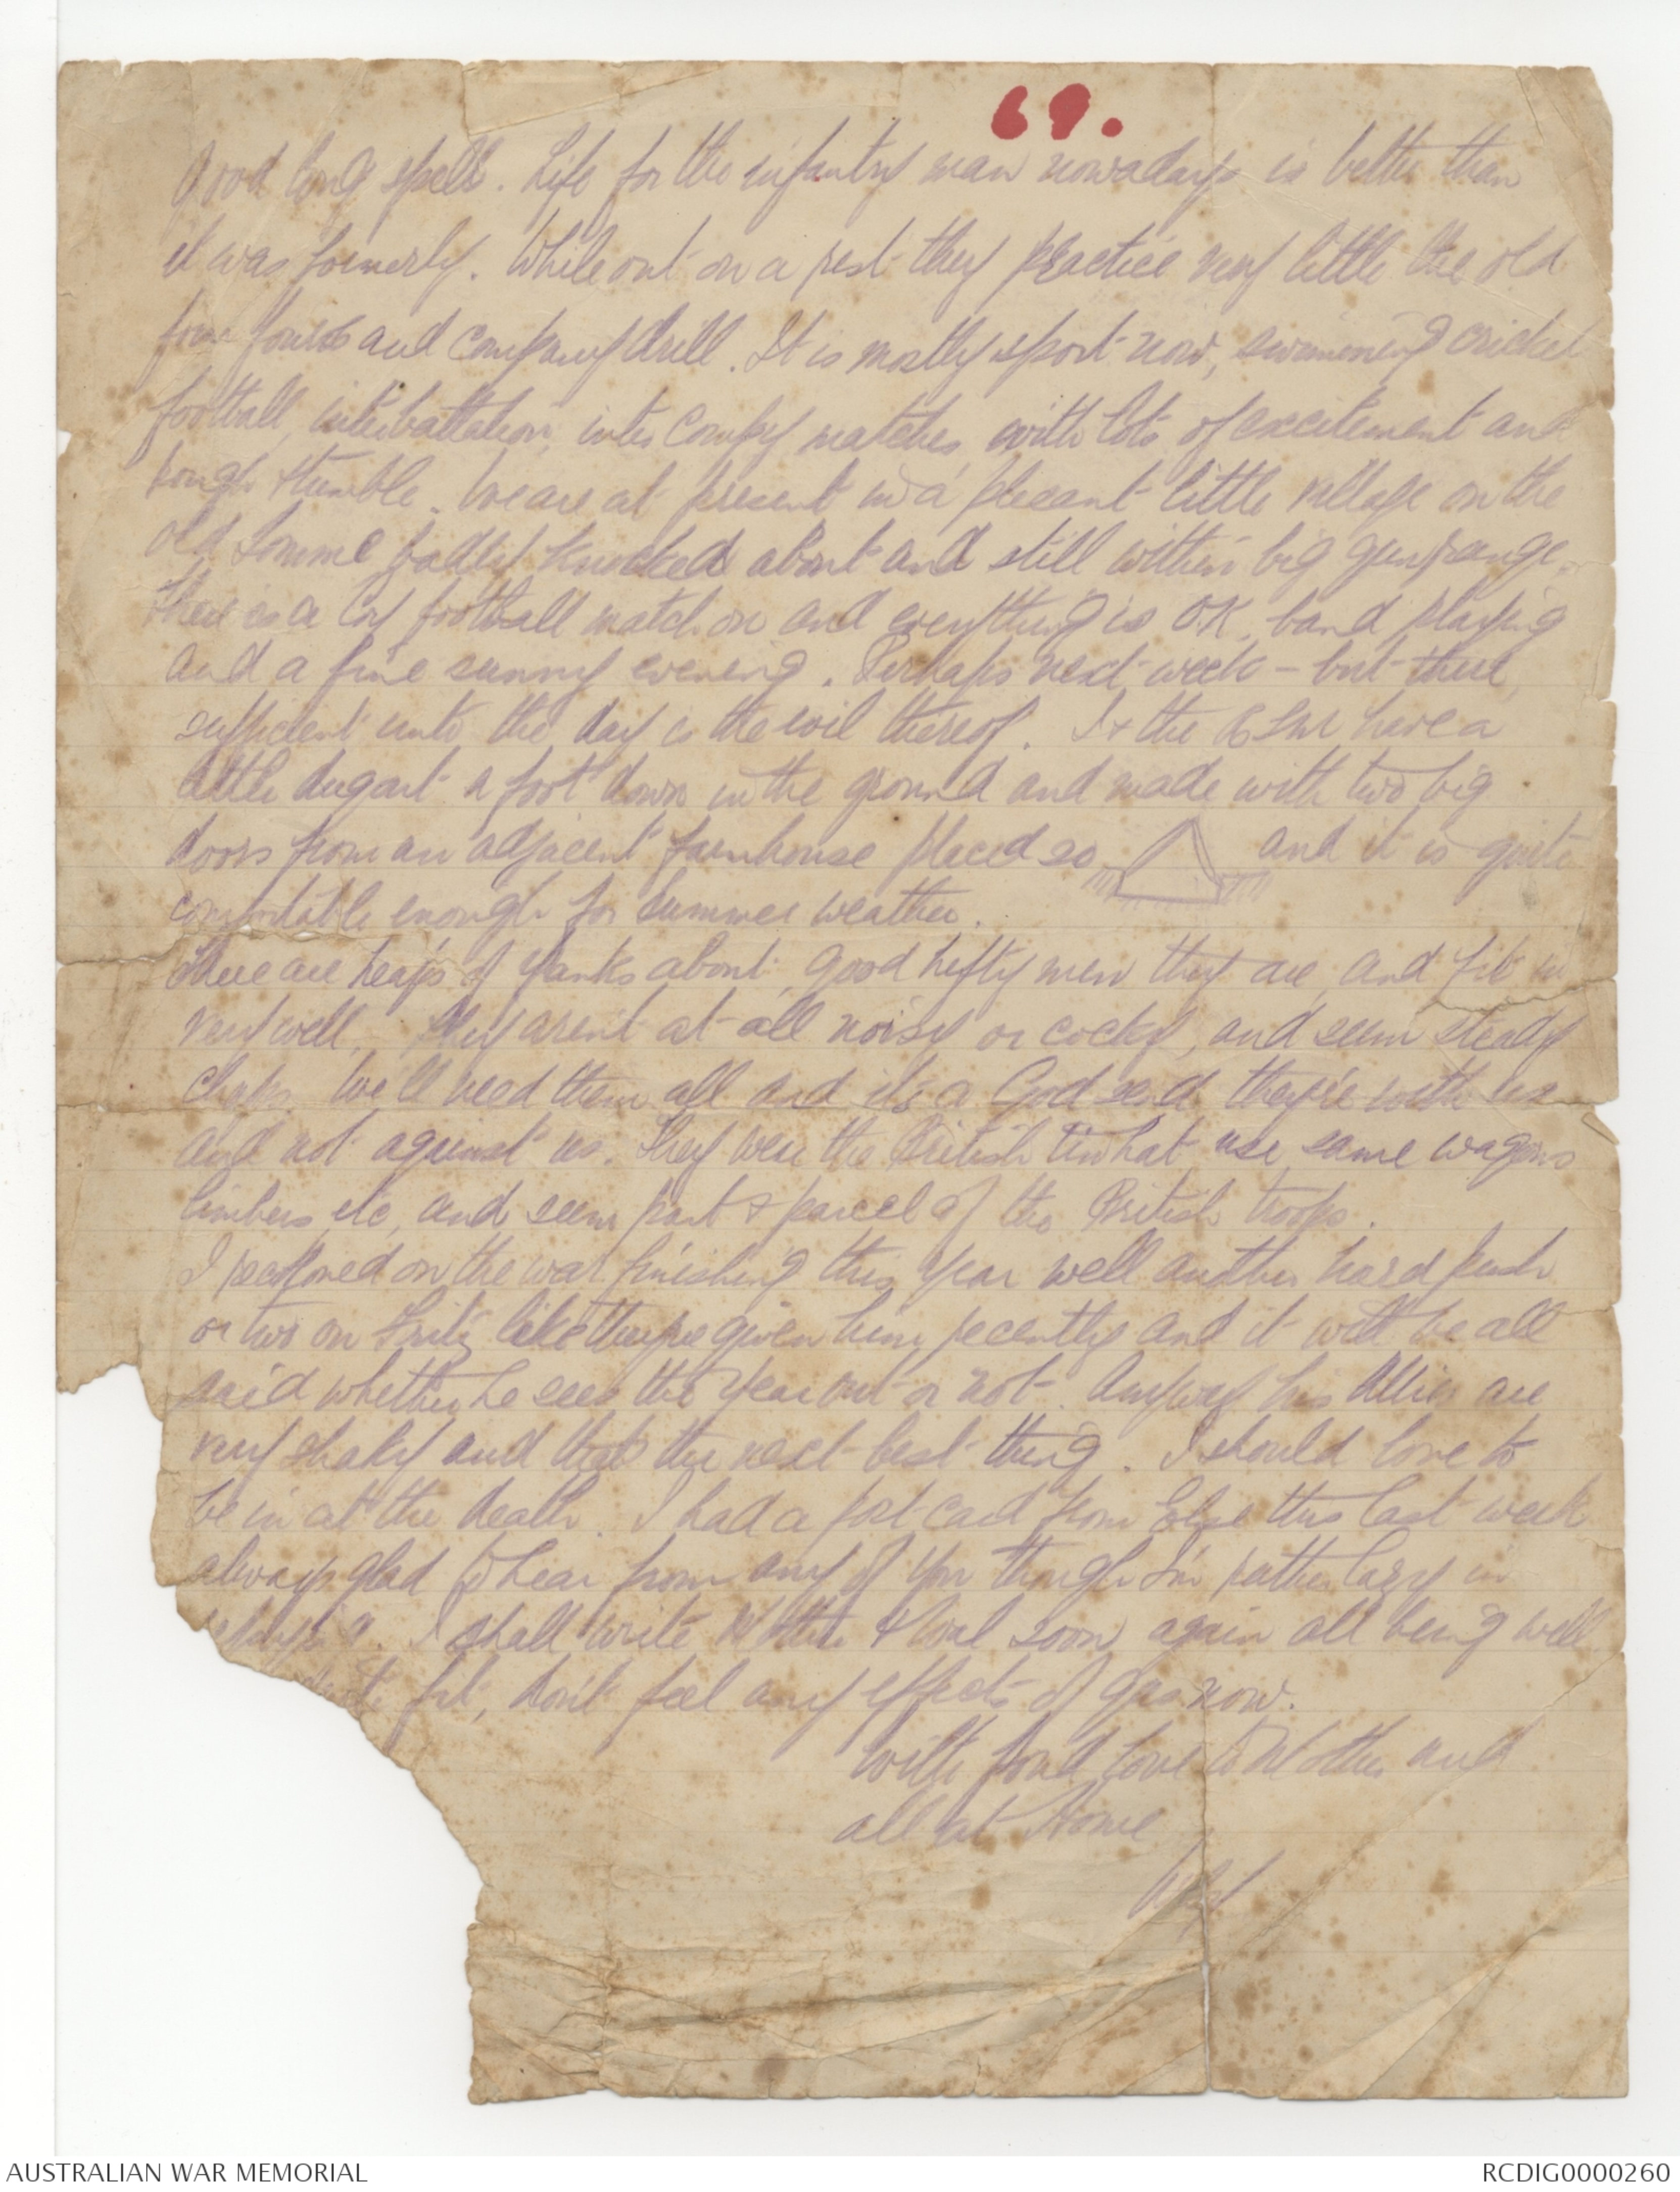 69.
good long spell. Life for the infantry man nowadays is better than
it was formerly. While out on a rest they practice very little the old
form fours and company drill. It is mostly sport now, swimming cricket
football, interbattalion, inter Compy matches with lots of excitement and
rough & tumble. We are at present in a pleasant little village on the
old Somme badly knocked about and still within big gun range.
There is a Coy football match on and everything is O.K. band playing
and a fine sunny evening. Perhaps next week - but there
sufficient unto the day is the evil thereof. I & the have a
little dugout a foot down in the ground and made with two big
doors from an adjacent farmhouse placed so and it is quite
comfortable enough for summer weather.
There are heaps of Yanks about, good hefty men they are, and fit in
very well. They aren't at all noisy or cocky, and seem steady
chaps. We'll need them all and it's a God send they're with us
and not against us. They wear the British tin hat, use same wagons
limbers etc, and seem part & parcel of the British troops.
I reckoned on the war finishing this year well another hard push
or two on Fritz like they've given him recently and it will be all
said whether he sees the year out or not. Anyway his Allies are
very shaky and that's the next best thing. I should love to
be in at the death. I had a post card from Elsie this last week
always glad to hear from any of you though I'm rather lazy in
replying. I shall write Mother & soon again all being well
fit, don't feel any effects of gas now.
With fond love to Mother and
all at Home

AUSTRALIAN WAR MEMORIAL
RCDIG0000260